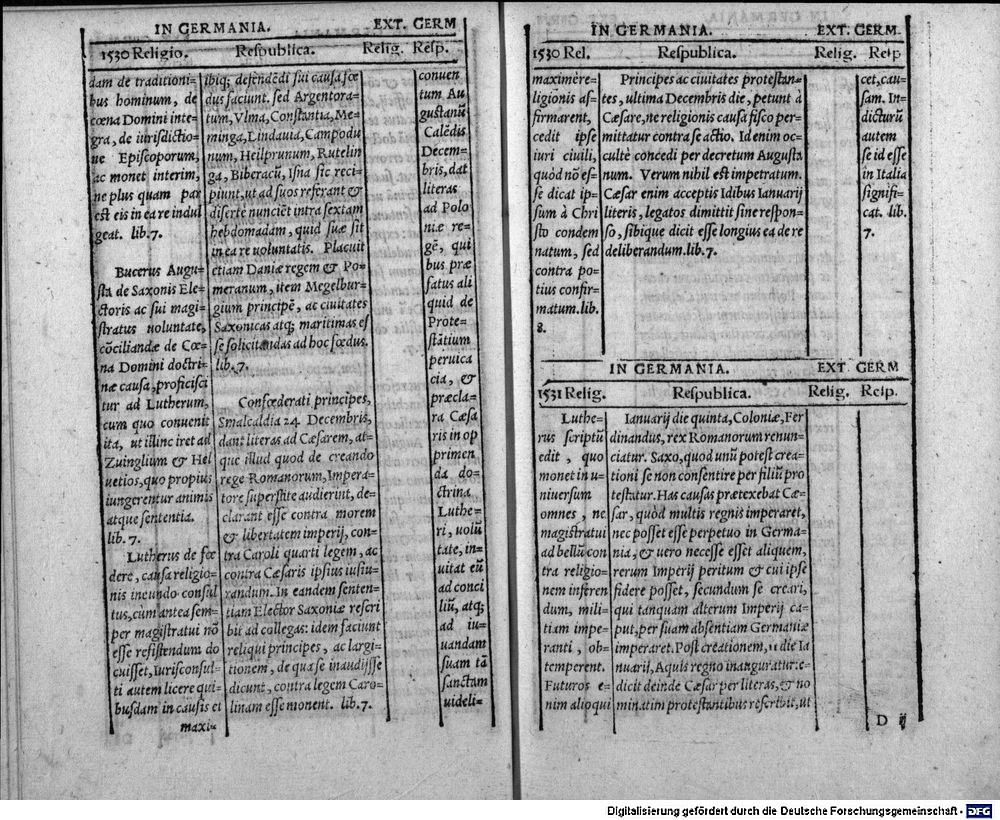 IN GERMANIA. EXT. GERM
1530 Religio. Reſpublica. Relig. Reſp.
dam de traditioni-
bus hominum, de
cœna Domini inte-
gra, de iuriſdictio-
ne Epiſcoporum,
ac monet interim,
ne plus quam par
eſt eis in ea re indul
geat. lib. 7.
Bucerus Augu-
ſta de Saxonis Ele-
ctoris ac ſui magi-
ſtratus uoluntate,
cōciliandæ de Cœ-
na Domini doctri-
næ cauſa, proficiſci
tur ad Lutherum,
cum quo conuenit
ita, ut illinc iret ad
Zuinglium & Hel
uetios, quo propius
iungerentur animis
atque ſententia.
lib. 7.
Lutherus de fœ
dere, cauſa religio-
nis ineundo conſul
tus, cùm antea ſem-
per magiſtratui nō
eſſe reſiſtendum do
cuiſſet, Iuriſconſul-
ti autem licere qui-
buſdam in cauſis et
maxi-
ibiq; defendēdi ſui cauſa fœ
dus faciunt. ſed Argentora-
tum, Vlma, Conſtantia, Me-
minga, Lindauia, Campodu
num, Heilprunum, Rutelin
ga, Biberacū, Iſna ſic reci-
piunt, ut ad ſuos referant &
diſerte nunciēt intra ſextam
hebdomadam, quid ſuæ ſit
in ea re uoluntatis. Placuit
etiam Daniæ regem & Po-
meranum, item Megelbur-
gium principē, ac ciuitates
Saxonicas atq; maritimas eſ
ſe ſolicitandas ad hoc fœdus.
lib. 7.
Confœderati principes,
Smalcaldia 24. Decembris,
dant literas ad Cæſarem, at-
que illud quod de creando
rege Romanorum, Impera-
tore ſuperſtite audierint, de-
clarant eſſe contra morem
& libertatem imperij, con-
tra Caroli quarti legem, ac
contra Cæſaris ipſius iuſiu-
randum. In eandem ſenten-
tiam Elector Saxoniæ reſcri
bit ad collegas: idem faciunt
reliqui principes, ac largi-
tionem, de qua ſe inaudijſſe
dicunt, contra legem Caro-
linam eſſe monent. lib. 7.
conuen
tum Au
guſtanū
Calēdis
Decem-
bris, dat
literas
ad Polo
niæ re-
gē, qui
bus præ
fatus ali
quid de
Prote-
ſtātium
peruica
cia, &
præcla-
ra Cæſa
ris in op
primen
da do-
ctrina
Luthe-
ri, uolū
tate, in-
uitat eū
ad conci
liū, atq;
ad iu-
uandam
ſuam tā
ſanctam
uideli-
IN GERMANIA. EXT. GERM.
1530 Rel. Reſpublica. Relig. Reſp
maximè re-
ligionis af-
firmarent,
cedit ipſe
iuri ciuili,
quòd nō eſ-
ſe dicat ip-
ſum à Chri
ſto condem
natum, ſed
contra po-
tius confir-
matum. lib.
8.
Principes ac ciuitates proteſtan-
tes, ultima Decembris die, petunt à
Cæſare, ne religionis cauſa fiſco per-
mittatur contra ſe actio. Id enim oc-
cultè concedi per decretum Auguſta
num. Verum nihil eſt impetratum.
Cæſar enim acceptis Idibus Ianuarij
literis, legatos dimittit ſine reſpon-
ſo, ſibique dicit eſſe longius ea de re
deliberandum. lib. 7.
cet, cau-
ſam. In-
dicturū
autem
ſe id eſſe
in Italia
ſignifi-
cat. lib.
7.
IN GERMANIA. EXT. GERM
1531 Relig. Reſpublica. Relig. Reſp.
Luthe-
rus ſcriptū
edit, quo
monet in u-
niuerſum
omnes, ne
magiſtratui
ad bellū con
tra religio-
nem inferen
dum, mili-
tiam impe-
ranti, ob-
temperent.
Futuros e-
nim alioqui
Ianuarij die quinta, Coloniæ, Fer
dinandus, rex Romanorum renun-
ciatur. Saxo, quod unū poteſt crea-
tioni ſe non conſentire per filiū pro
teſtatur. Has cauſas prætexebat Cæ-
ſar, quòd multis regnis imperaret,
nec poſſet eſſe perpetuo in Germa-
nia, & uero neceſſe eſſet aliquem,
rerum Imperij peritum & cui ipſe
fidere poſſet, ſecundum ſe creari,
qui tanquam alterum Imperij ca-
put, per ſuam abſentiam Germaniæ
imperaret. Poſt creationem, 11 die Ia
nuarij, Aquis regno inauguratur: e-
dicit deinde Cæſar per literas, & no
minatim proteſtantibus reſcribit, ut
D ij
Digitalisierung gefördert durch die Deutsche Forschungsgemeinschaft - DFG